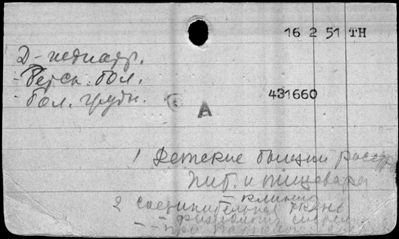 16 2 51 TH
Д - педиатр.
- Детск. бол.
- бол. грудн.
А
431660
1 Детские болезни расстр
пит. и пищевар
- клиника
2 соединительная ткань